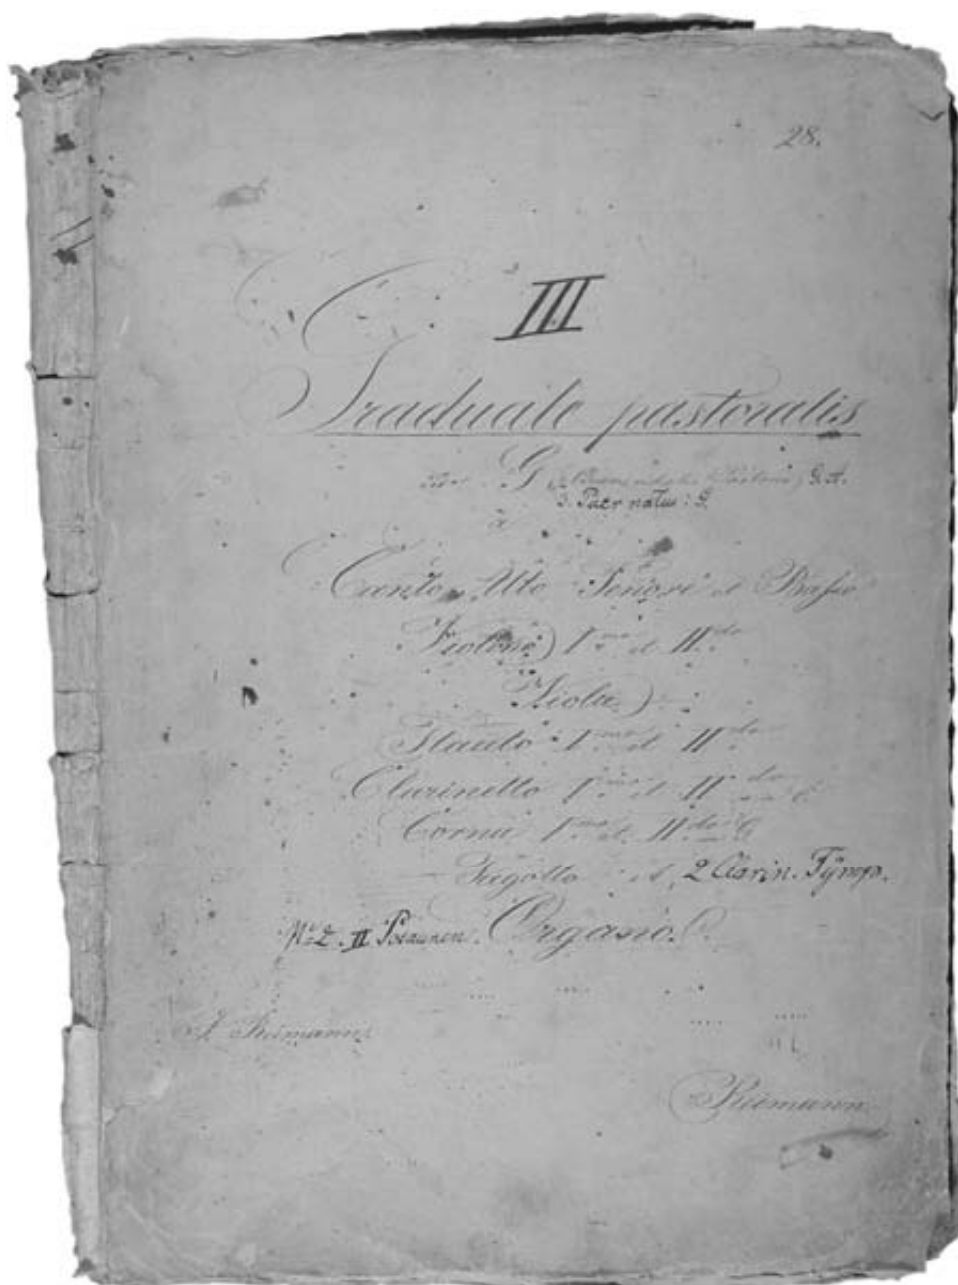 28.
III
Graduale pastoralis
G G. A.
3. Puer natus: G.
a
Canto Alto Tenore et Basso
Violino I mo et II do
Viola
Flauto I mo et II do
Clarinetto I mo et II do C
Cornu I mo et II do G
Fagotto et 2 Clarin. Tÿmp.
No 2. II Posaunen. Organo.
Reimann
Reimann